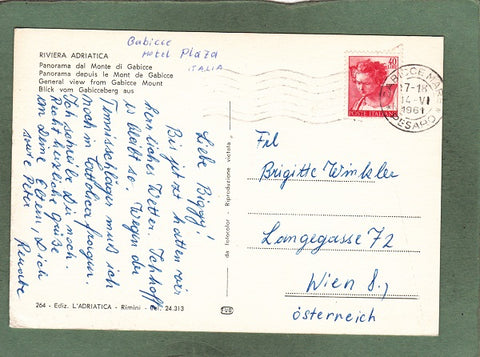 RIVIERA ADRIATICA
Panorama dal Monte di Gabicce
Panorama depuis le Mont de Gabicce
General view from Gabicce Mount
Blick vom Gabicceberg aus
Gabicce
Hotel Plaza
ITALIA
40
POSTE ITALIANE
GABICCE MARE
17-18
14-VI
1961
PESARO
Liebe Biggy!
Bis jetzt hatten wir
herrliches Wetter. Ich hoffe
es bleibt so. Wegen der
Tennisschläger muß ich
noch in Cattolica fragen.
Ich schreibe Dir noch.
Recht herzliche Grüße
an Deine Eltern, Dich
Renate
da fotocolor - Riproduzione vietata
Frl
Brigitte Winkler
Langegasse 72
Wien 8,
Österreich
264 - Ediz. L'ADRIATICA - Rimini - Tel. 24.313